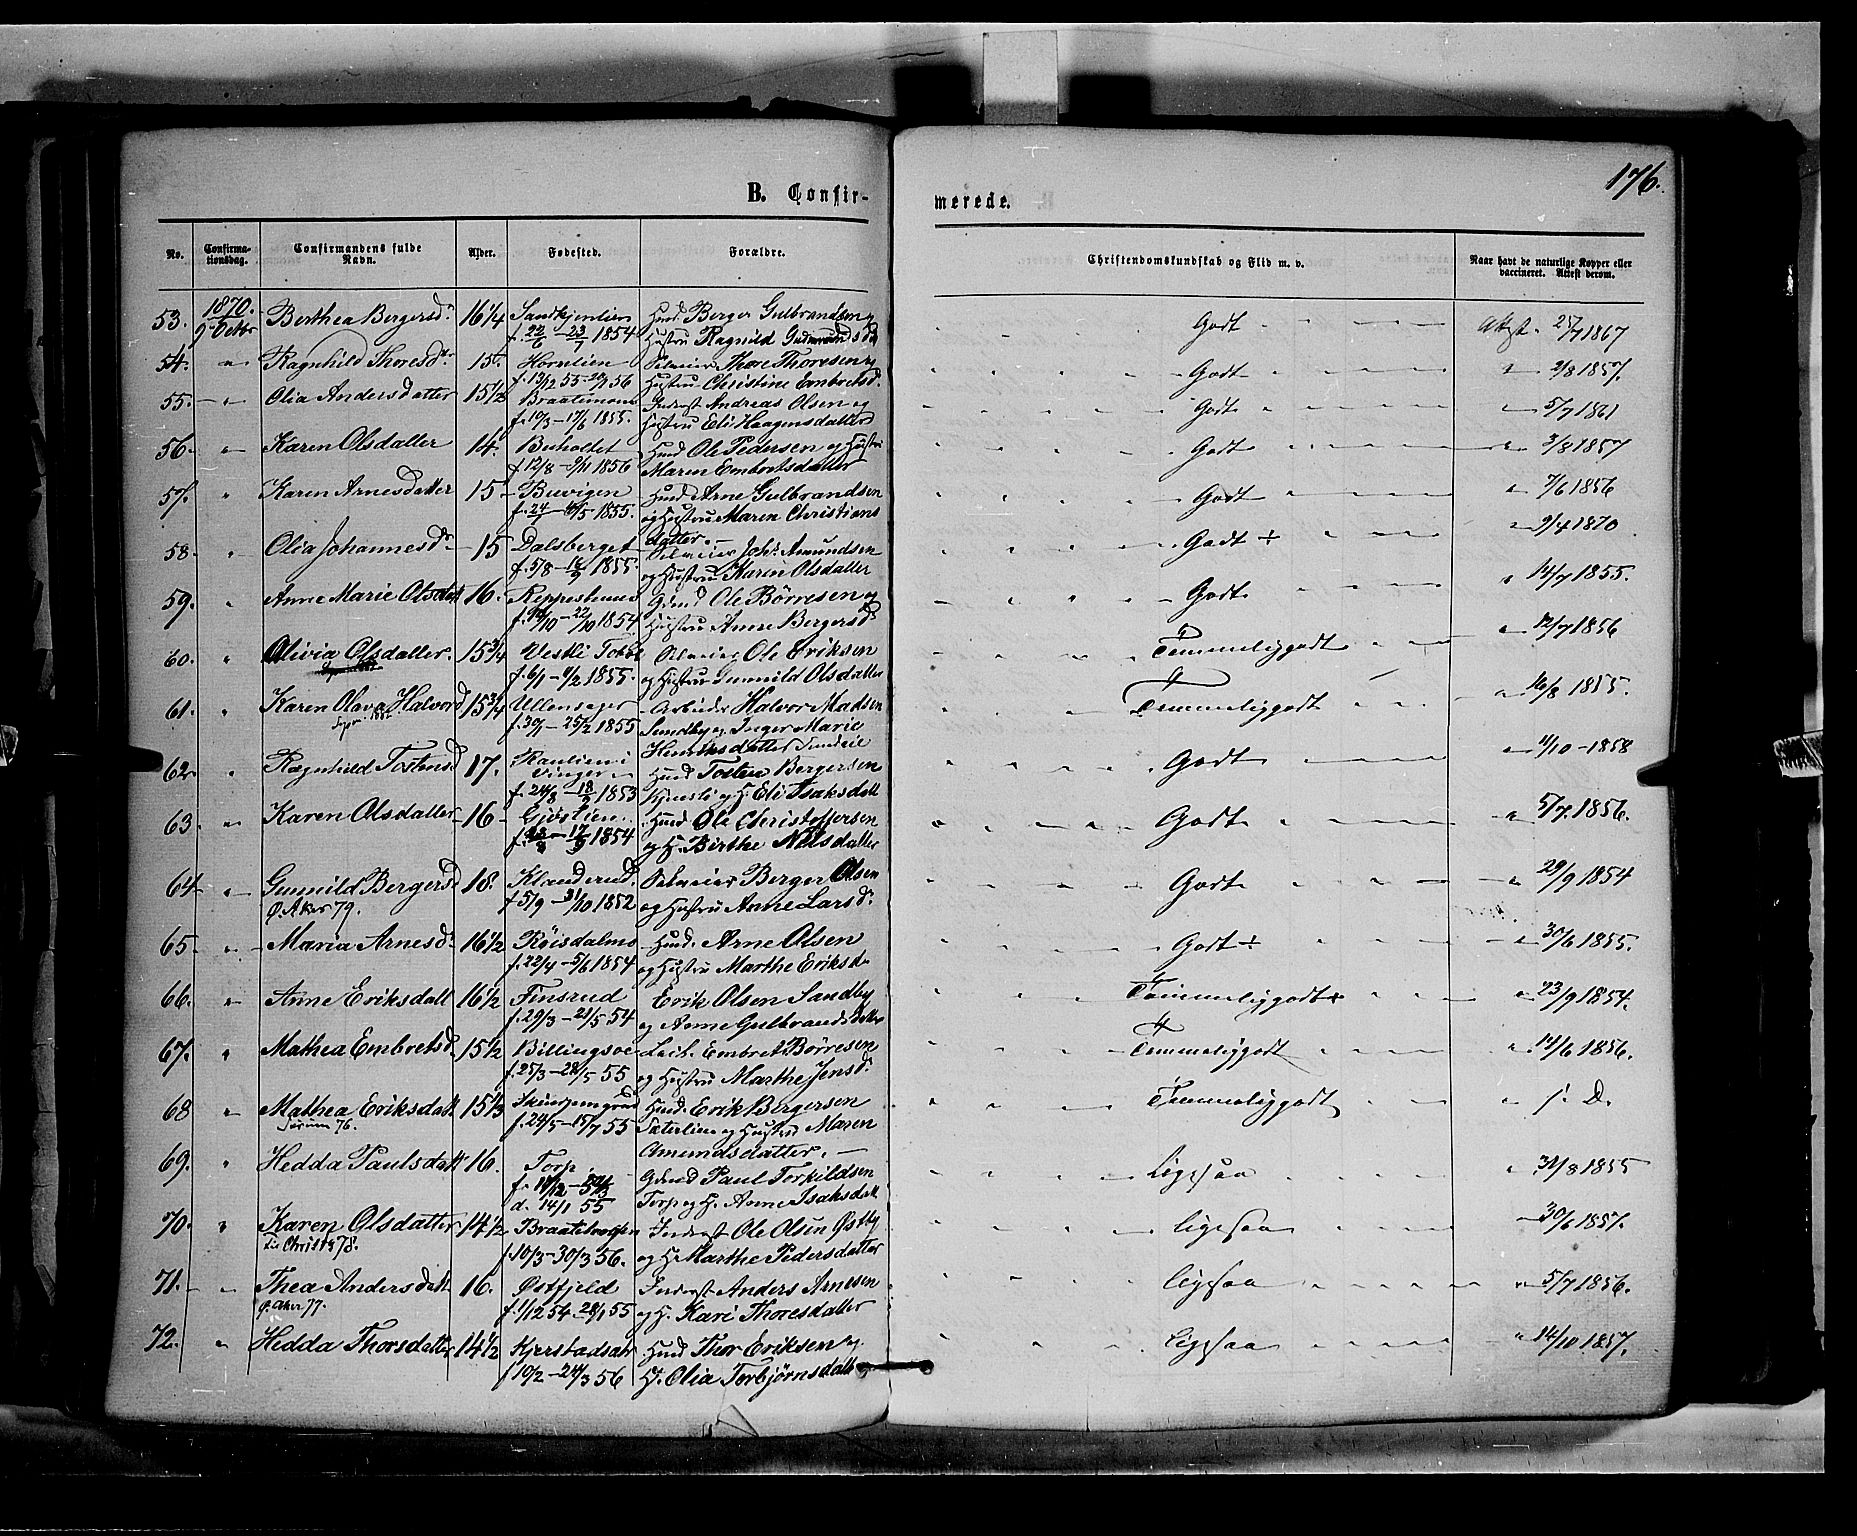 176.
B. Confirmerede.
No. Confirmationsdag. Confirmandens fulde Navn. Alder. Fødested. Forældre. Christendomskundskab og Flid m. v. Naar havt de naturlige Kopper eller vaccineret. Attest derom.
53. 1870. 9 Octbr Berthea Bergersd. 16 1/4 f. 22/6 - 23/7 1854 Huusm. Berger Gulbrandsen og Hustru Ragnild Gudmundsd. Godt Attest 25/7 1867
54. " Ragnhild Thoresdtr 15 Hornlien Selveier Thore Thoresen og Hustru Christine Embretsd. Godt " 2/8 1857.
55. " Olia Andersdatter 15 1/2 f. 10/3 - 17/6 1855. Inderst Andreas Olsen og Hustru Eli Haagensdatter Godt " 5/7 1861
56. " Karen Olsdatter 14. Buholtet f. 12/8 - 9/11 1856 Huusm. Ole Pedersen og Hustru Maren Embretsdatter Godt " 3/8 1857
57. " Karen Arnesdatter 15 Buvigen 1855. Huusm. Arne Gulbrandsen og Hustru Maren Christiansdatter. Godt " 7/6 1856
58. " Olia Johannesd. 15 Dalsberget f. 5/8 - 16/9 1855. Selveier Joh: Amundsen og Hustru Karin Olsdatter Godt ÷ " 9/4 1870
59. " Anne Marie Olsdatt 16. 22/10 1854 Ole Børresen og Hustru Anne Bergersd. Godt " 14/7 1855.
60. " Olivia Olsdatter. 15 3/4 f. 6/1 - 4/2 1855. Selveier Ole Eriksen og Hustru Gunnild Olsdatter Temmeliggodt " 12/7 1856
61. " Karen Olava Halvord 15 3/4 Ullensager f. 30/1 - 25/2 1855 Arbeider Halvor Madsen Sundby og Inger Marie Henriksdatter Temmeliggodt " 16/8 1855.
62. " Ragnhild Tostensd 17. Vinger f. 24/8 - 18/9 1853 Huusm. Tosten Bergersen og H. Eli Isaksdatt Godt " 4/10 - 1858
63. " Karen Olsdatter 16 Gjøslien 17/9 1854 Huusm. Ole Christofersen og H. Birthe Nilsdatter Godt " 5/7. 1856.
64 " Gunnild Bergersd 18. Klanderud. f. 5/9 - 31/10 1852 Selveier Berger Olsen og Hustru Anne Larsd. Godt " 29/9 1854
Ø. Aker 79.
65 " Maria Arnesd. 16 1/2 Røisdalmo f. 22/4 - 5/6 1854 Huusm. Arne Olsen og Hustru Marthe Eriksd. Godt ÷ " 30/6 1855.
66. " Anne Eriksdatt 16 1/2 Finsrud f. 29/3 - 21/5 54 Erik Olsen Sandby og Anne Gulbrandsdatter Temmeliggodt " 23/9 1854.
67. " Mathea Embretsd. 15 1/2 f. 25/3 - 28/5 55 Embret Børresen og Hustru Marthe Jensd. Temmeliggodt " 14/6 1856.
68 " Mathea Eriksdatt 15 1/3 f. 24/5 - 15/7 55 Huusm. Erik Bergersen og Hustru Maren Amundsdatter. Temmeliggodt " s. D.
76.
69. " Hedda Paulsdatt 16. Torp. d. 14/1 55 Paul Torkildsen Torp og H. Anne Isaksdatt Ligesaa " 31/8 1855
70. " Karen Olsdatter 14 1/2 f. 10/3 - 30/3 56. Inderst Ole Olsen Østby og H. Marthe Pedersdatter Ligesaa " 30/6 1857.
til Christ 78.
71. " Thea Andersdatt 16. Østfjeld f. 1/12 54 - 28/1 55 Inderst Anders Arnesen og H. Kari Thoresdatter Ligesaa " 5/7 1856.
Ø. Aker 77.
72. " Hedda Thorsdatter 14 1/2 f. 10/2 - 24/3 56 Huusm. Thor Eriksen og H. Olia Torbjørnsdatt Ligesaa " 14/10 1857.